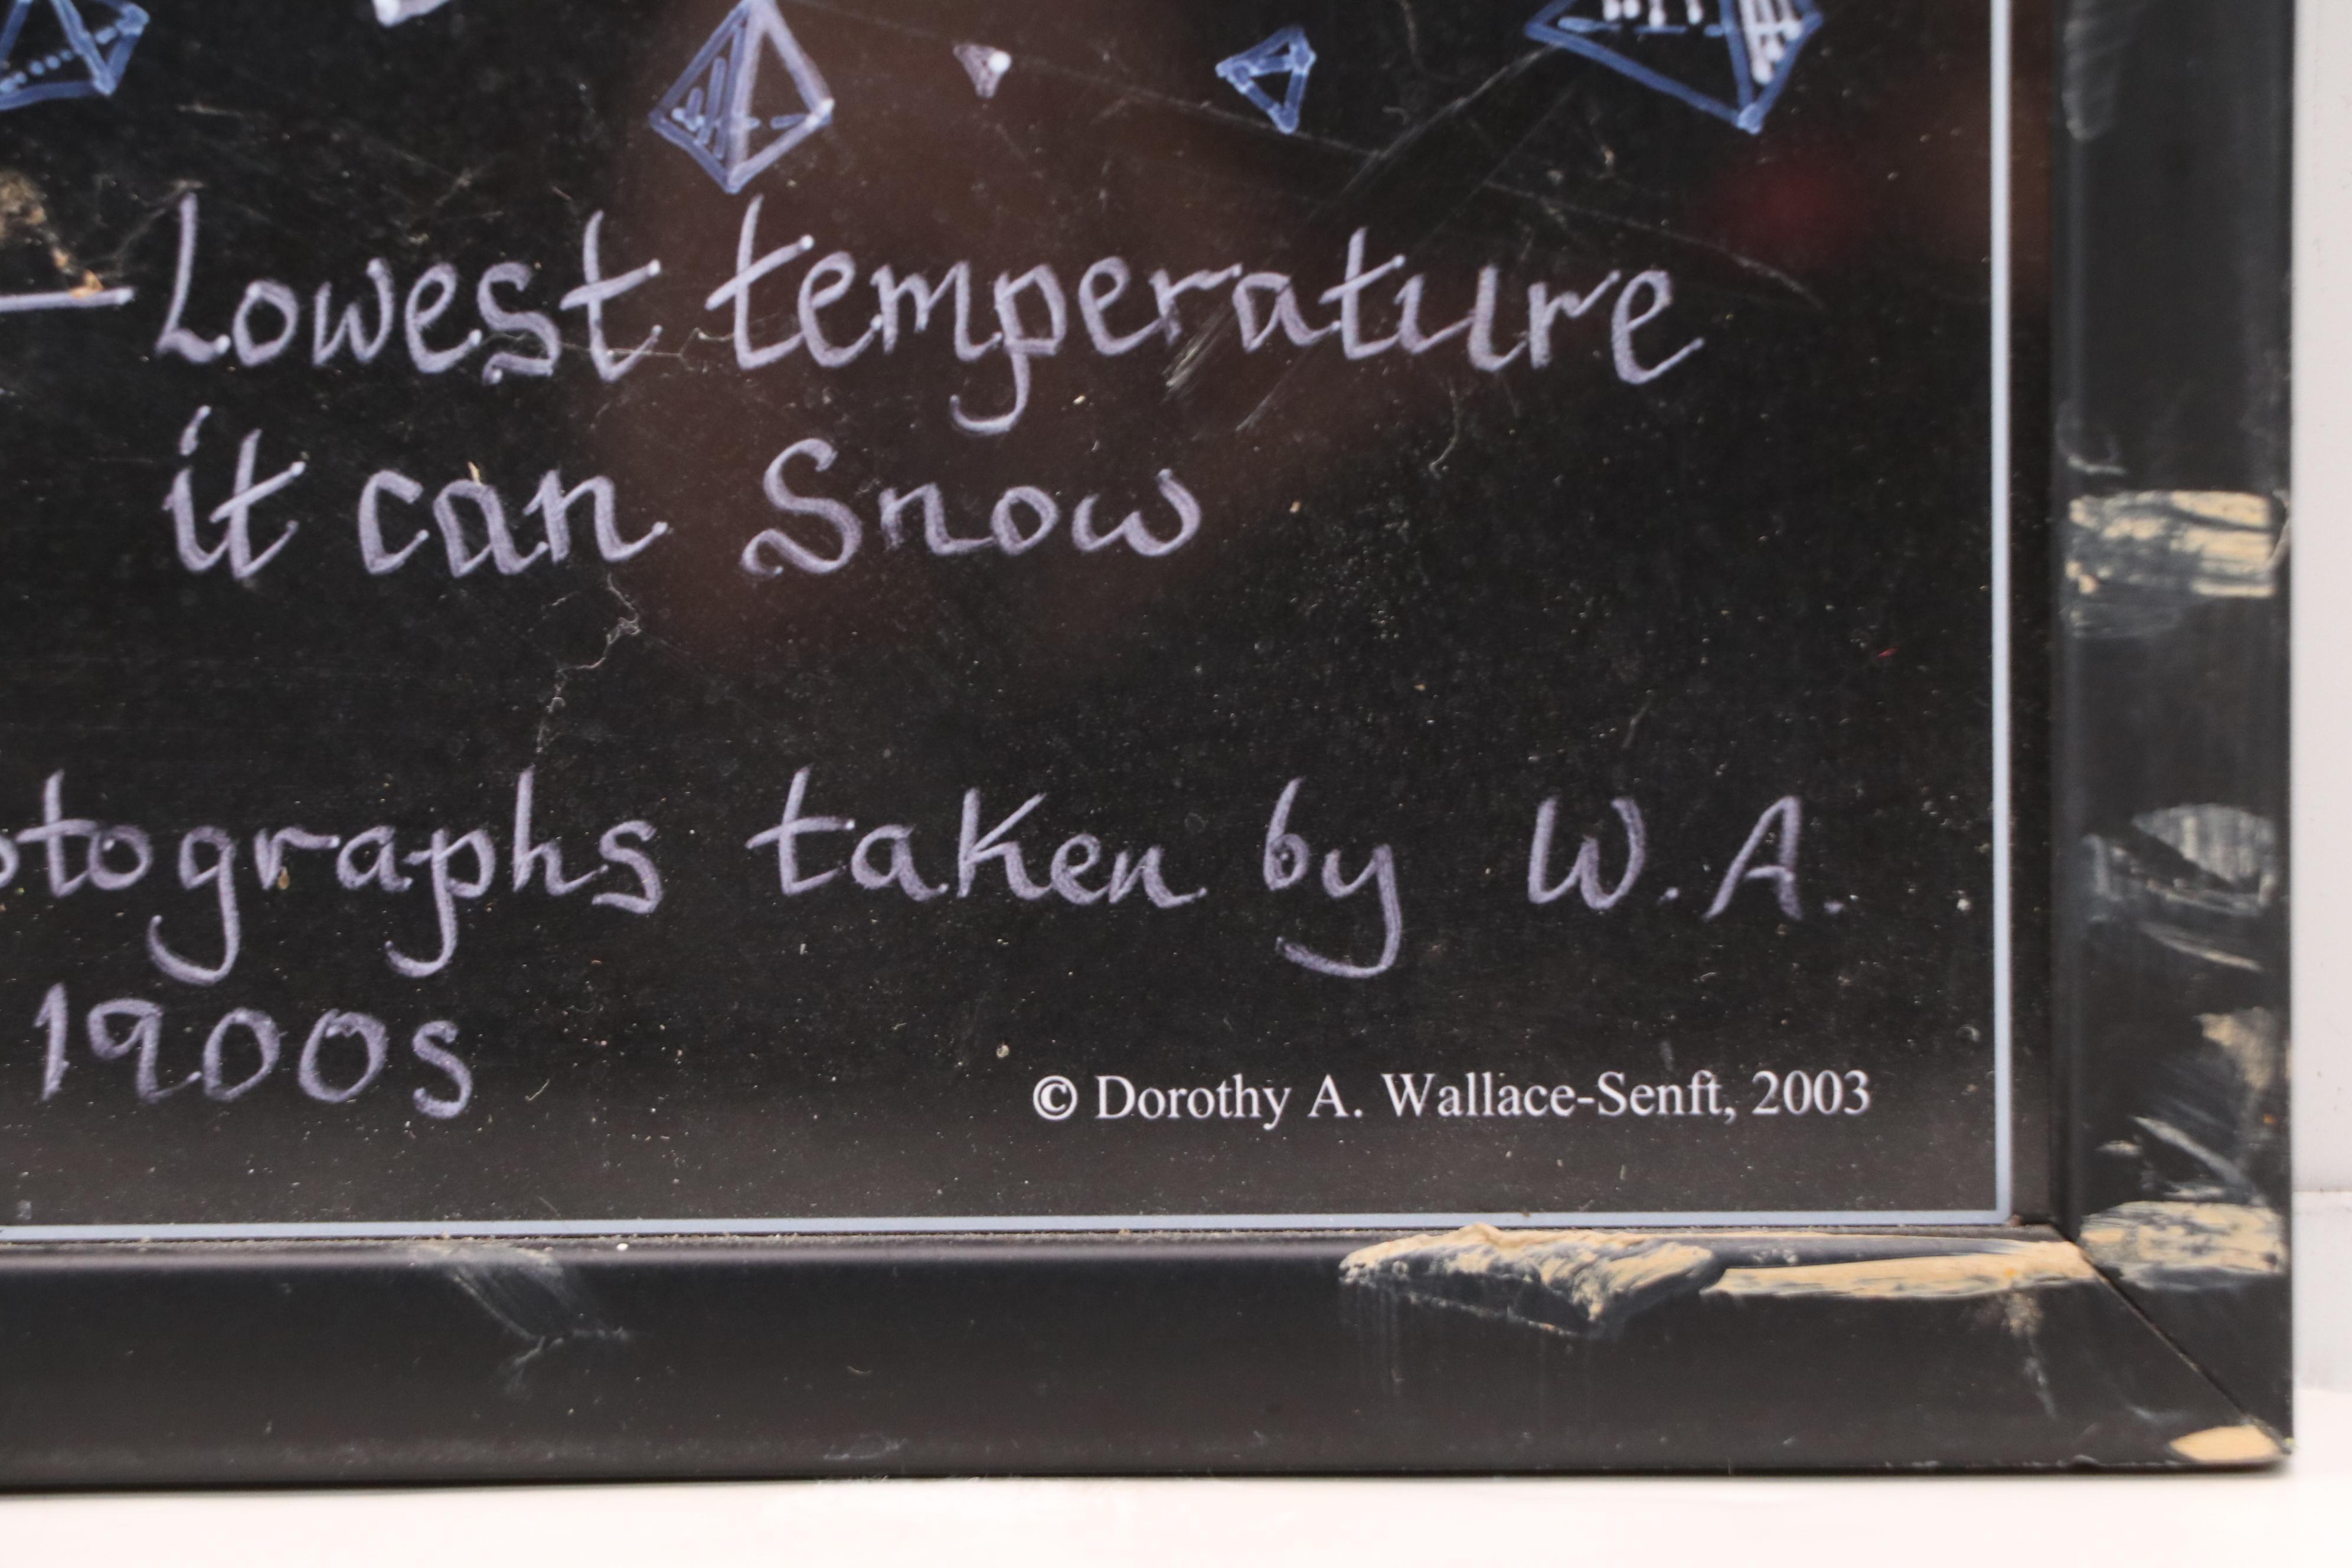 Lowest temperature
it can Snow
tographs taken by W.A.
1900s
© Dorothy A. Wallace-Senft, 2003